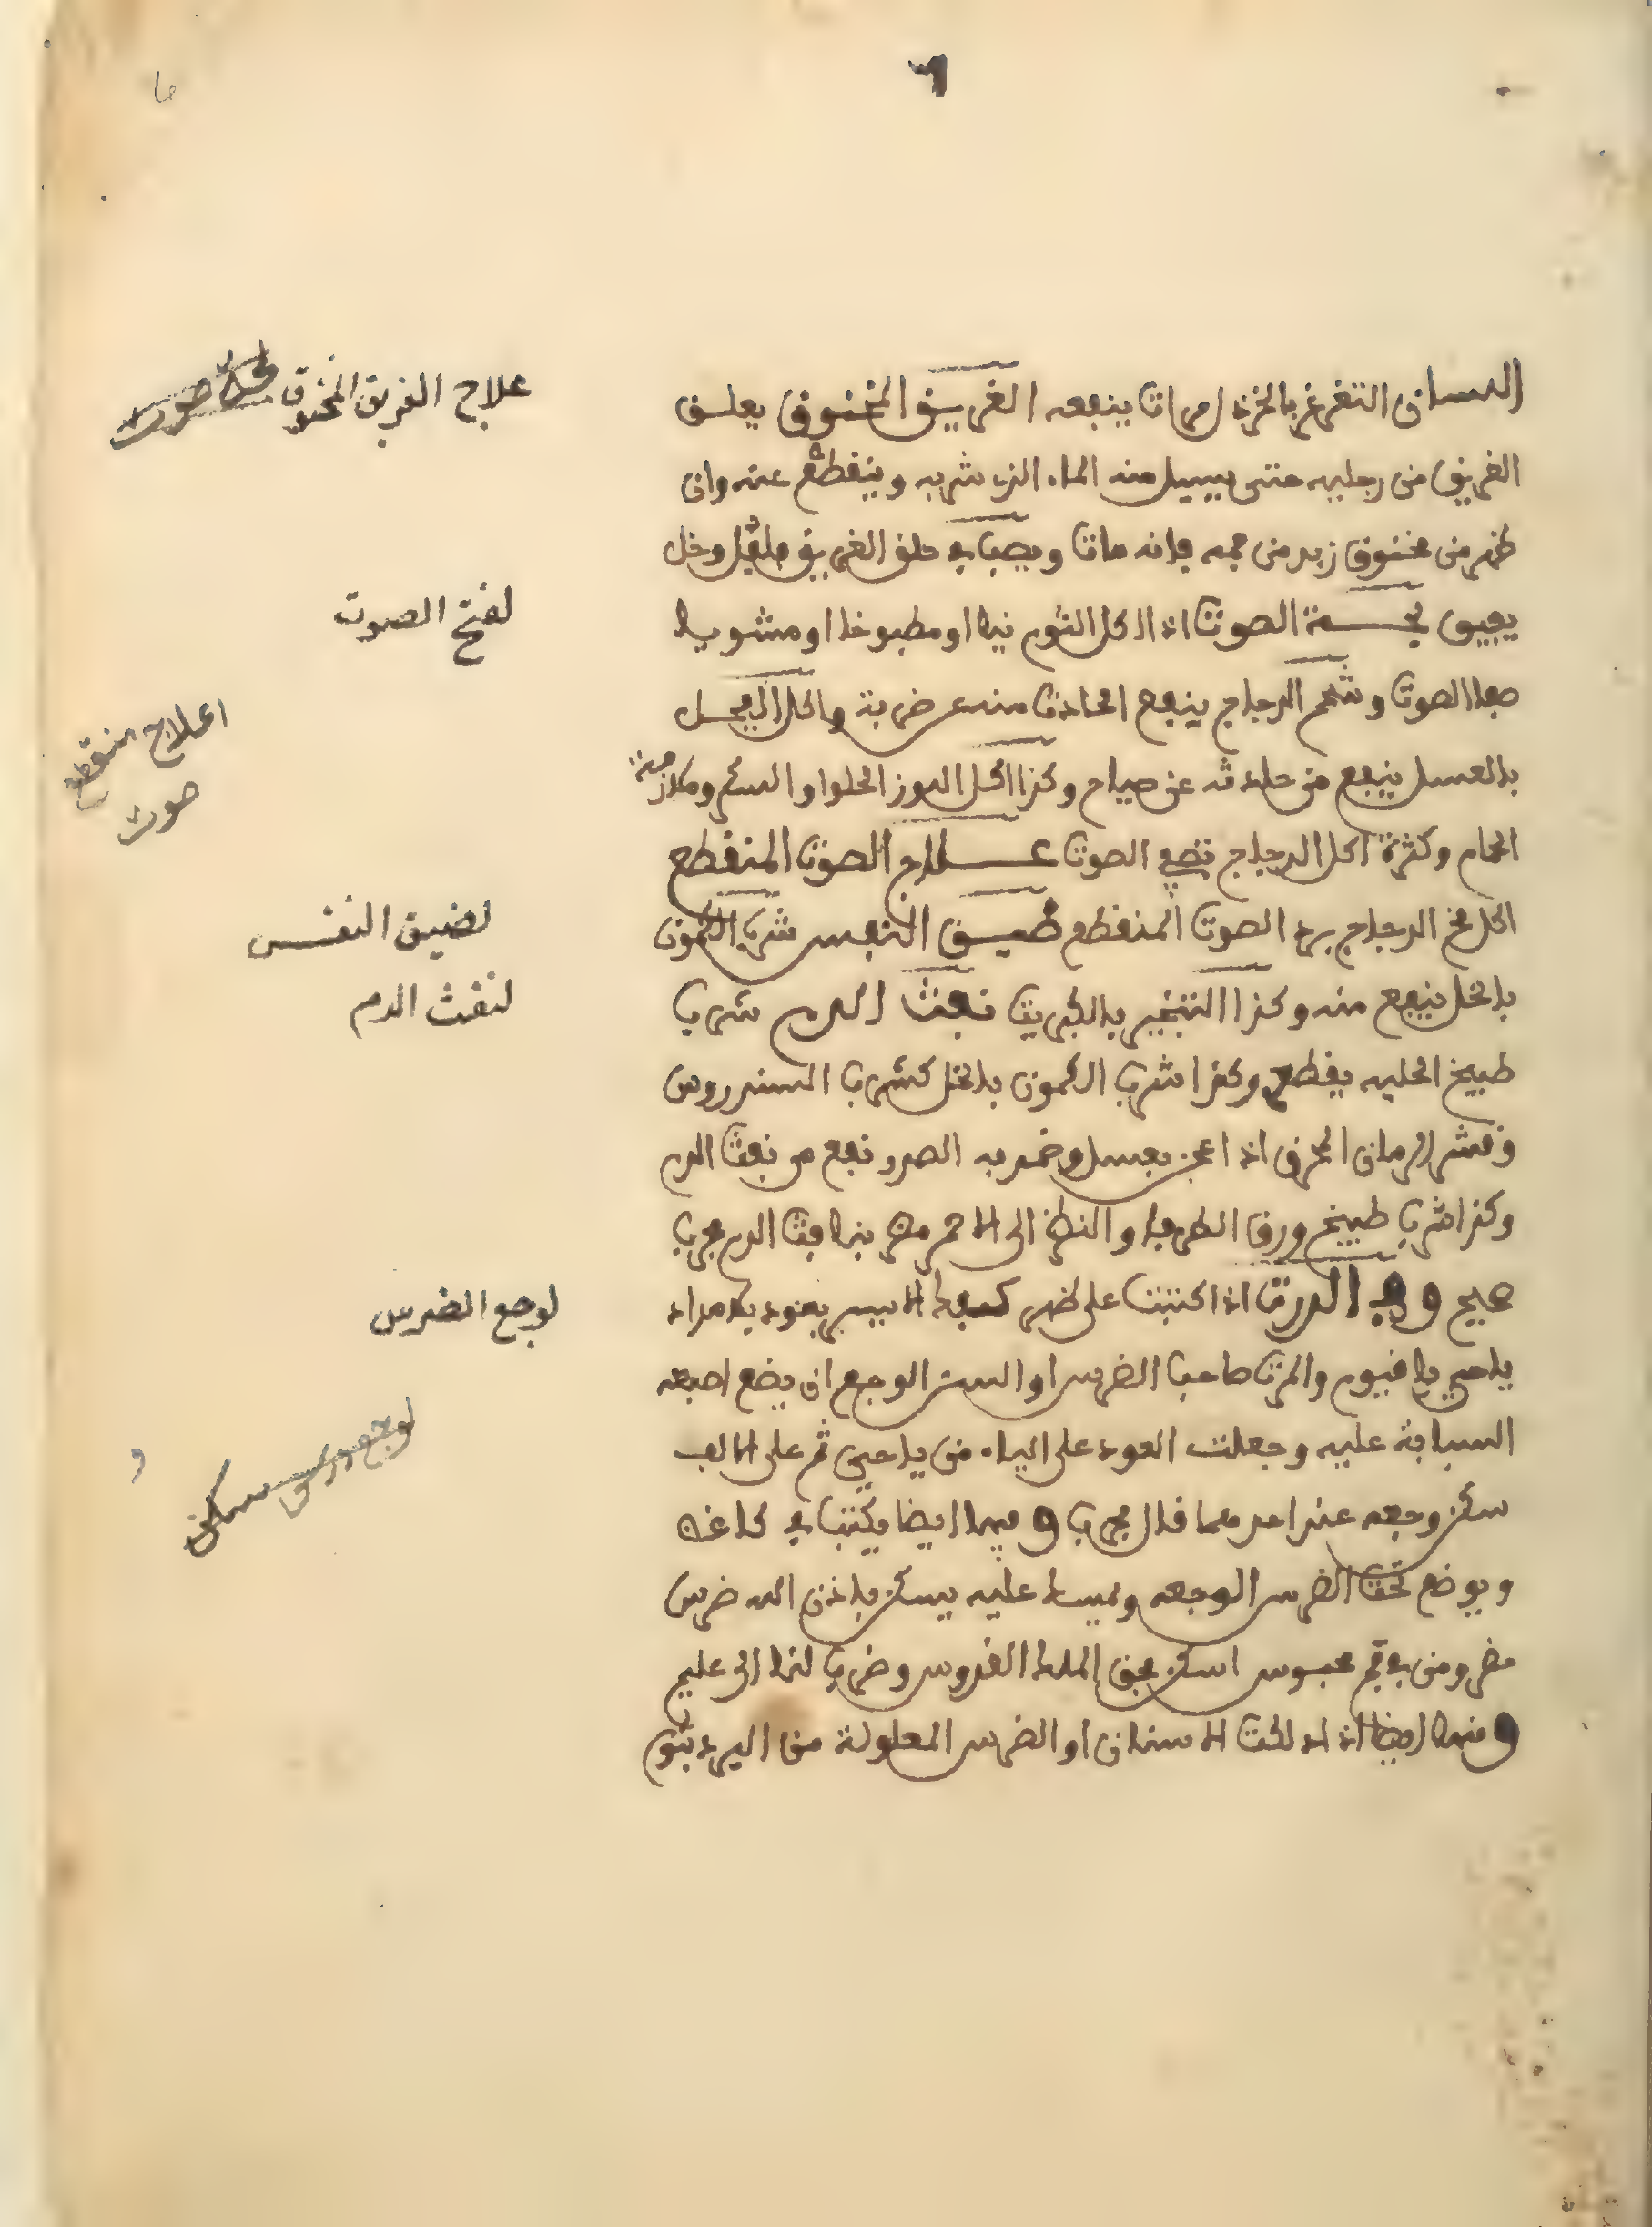 ٦
اللسان التغرغر بالخردل مرات ينفعه الغريق المخنوق يعلق
الغريق من رجليه حتى يسيل منه الماء الذي شربه وينقطع عنه وان
ظهر من مخنوق زبد من فمه فانه مات ويصب في حلق الغريق فلفل وخل
يفيق بحة الصوت اذا اكل الثوم نيا او مطبوخا او مشويا
صفا الصوت وشحم الدجاج ينفع الحادث منه عن ضربة واكل الفجل
بالعسل ينفع من حادثه عن صياح وكذا اكل اللوز الحلوا والسكر وملازمة
الحمام وكثرة اكل الدجاج تصفي الصوت علاج الصوت المنقطع
اكل مخ الدجاج يرد الصوت المنقطع ضيق النفس شرب الكمون
بالخل ينفع منه وكذا التبخير بالكبريت نفث الدم شرب
طبيخ الحلبه يقطع وكذا شرب الكمون بالخل كشرب السندروس
وقشر الرمان اذا عجن بعسل وضمد به الصدر نفع من نفث الدم
وكذا شرب طبيخ ورق الطرفا والنظر الى الاحمر مضر بنافث الدم مجرب
صحيح وفي الدرت اذا كتبت على ظهر كفك الايسر بعود بلا مداد
ياحي ياقيوم وامرت صاحب الضرس او السن الوجع ان يضع اصبعه
السبابة عليه وجعلت العود على الياء من ياحي ثم على الالف
سكن وجعه عند احدهما قال مجرب وفيها ايضا يكتب في كاغد
ويوضع تحت الضرس الوجعه ويمسك عليه يسكن باذن الله ضرس
مضروس بفم عبوس اسكن بحق الملك القدوس وضرب لنا الى عليم
ومنها ايضا اذا دلكت الاسنان او الضرس المعلولة من البرد بثوم
علاج الغريق المخنوق
لفتح الصوت
اعلاج منقطع
صوت
لضيق النفس
لنفث الدم
لوجع الضرس